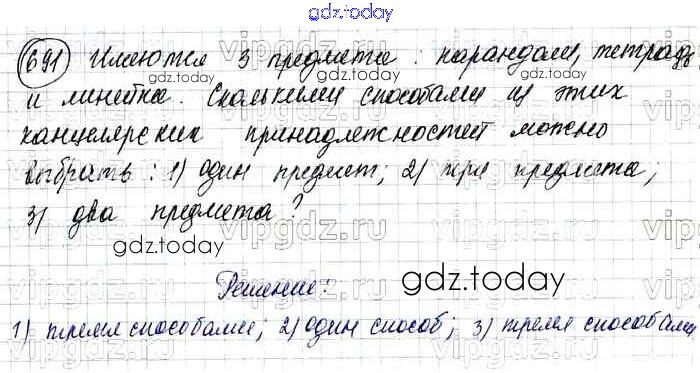 gdz.today
691 Имеются 3 предмета: карандаш, тетрадь
и линейка. Сколькими способами из этих
канцелярских принадлежностей можно
выбрать: 1) один предмет; 2) три предмета;
3) два предмета?
Решение:
1) тремя способами; 2) один способ; 3) тремя способами
vipgdz.ru
gdz.today
gdz.today
gdz.today
gdz.today